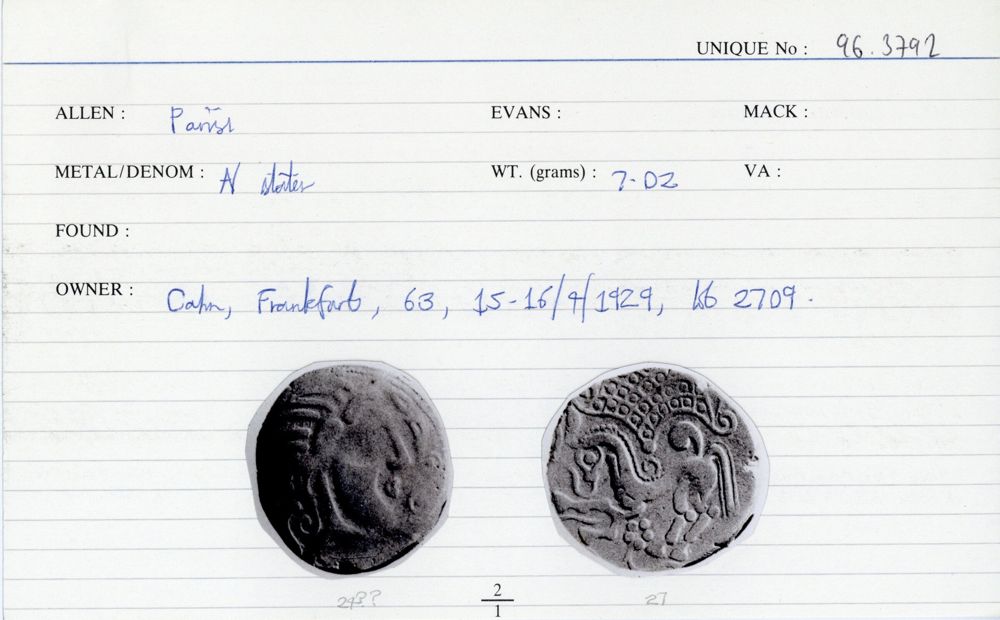 UNIQUE No : 96.3792
ALLEN : Parisi EVANS : MACK :
METAL/DENOM : AV stater WT. (grams) : 7.02 VA :
FOUND :
OWNER : Cahn, Frankfurt, 63, 15-16/4/1929, lot 2709.
2
1
27